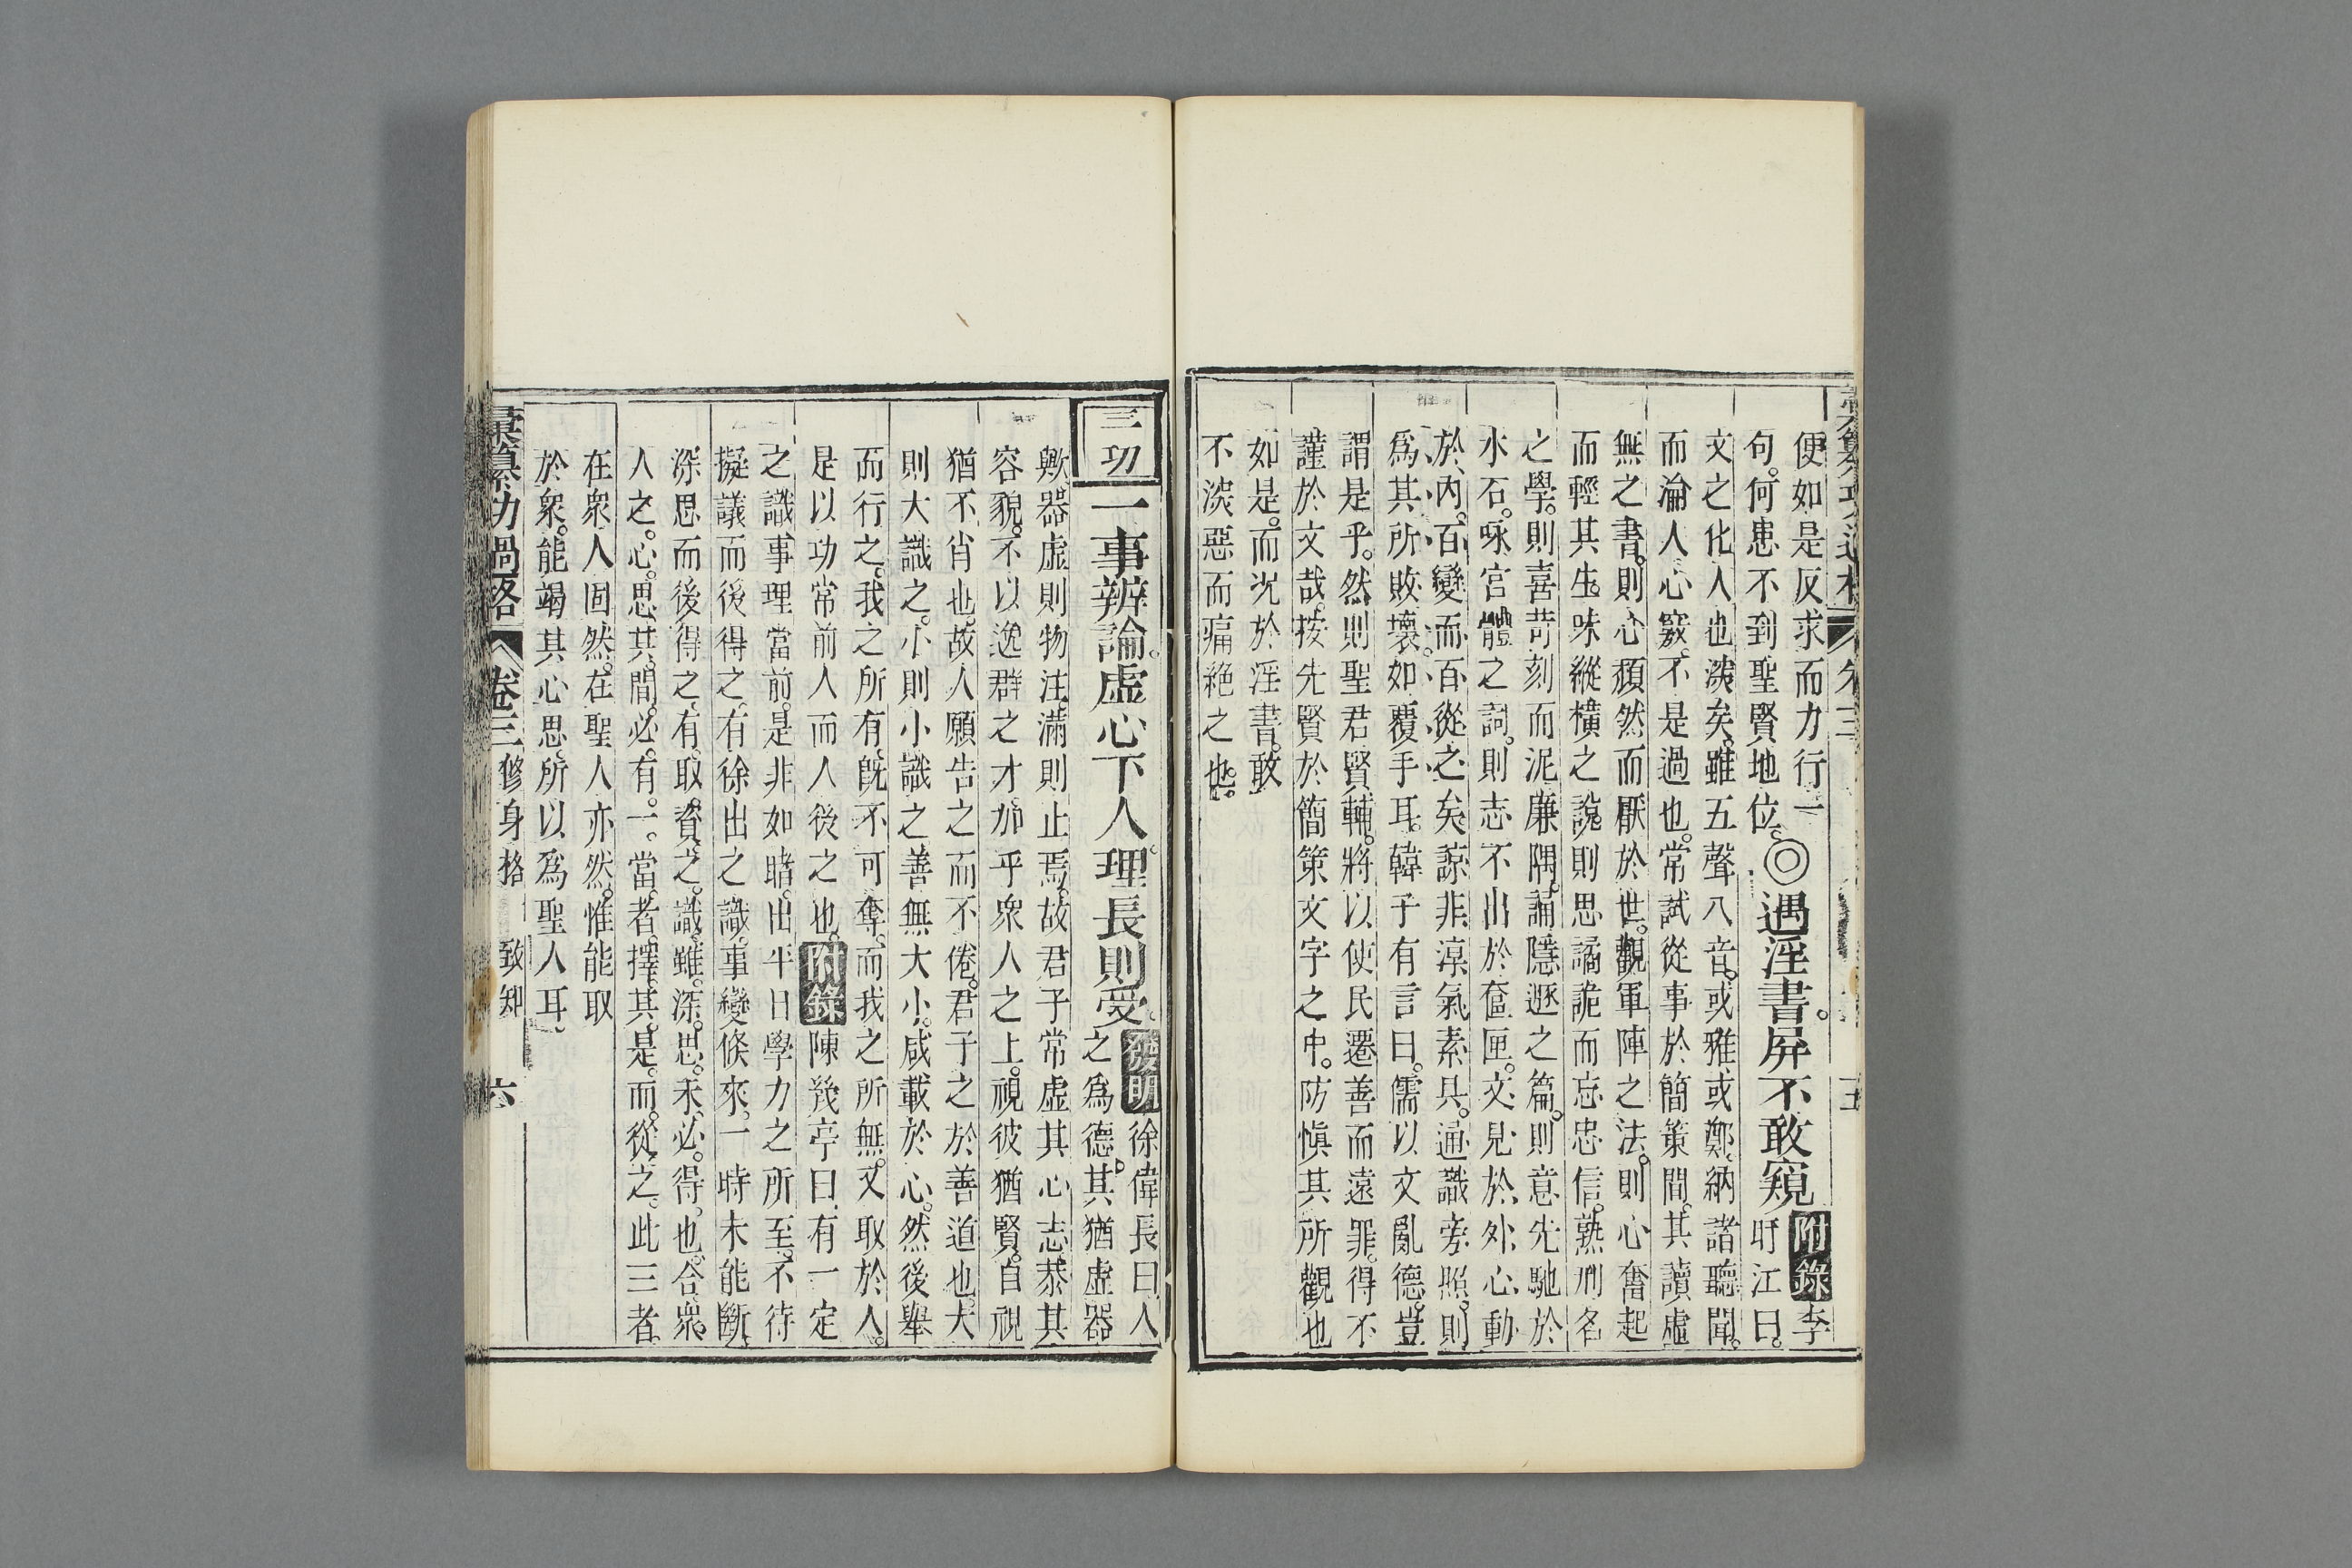 便如是反求而力行一
句。何患不到聖賢地位。◎遇淫書。屏不敢窺附錄李
盱江曰。
文之化人也淡矣。雖五聲八音。或雅或鄭。納諸聽聞。
而瀹人心竅。不是過也。常試從事於簡策間。其讀虛
無之書。則心頹然而厭於世。觀軍陣之法。則心奮起
而輕其生。味縱橫之說。則思譎詭而忘忠信。熟刑名
之學。則喜苛刻而泥廉隅。誦隱遯之篇。則意先馳於
水石。咏宮體之詞。則志不出於奩匣。文見於外。心動
於內。百變而百從之矣。諒非淳氣素具。通識旁照。則
爲其所敗壞。如覆手耳。韓子有言曰。儒以文亂德。豈
謂是乎。然則聖君賢輔。將以使民遷善而遠罪。得不
謹於文哉。按先賢於簡策文字之中。防慎其所觀也
如是。而況於淫書。敢
不淡惡而痛絕之也。
三功
一事辨論。虛心下人。理長則受。發明徐偉長曰。人
之爲德。其猶虛器
歟。器虛則物注。滿則止焉。故君子常虛其心志。恭其
容貌。不以逸群之才。加乎衆人之上。視彼猶賢。自視
猶不肖也。故人願告之而不倦。君子之於善道也。大
則大識之。小則小識之。善無大小。咸載於心。然後舉
而行之。我之所有。既不可奪。而我之所無。又取於人。
是以功常前人而人後之也。附錄陳幾亭曰。有一定
之識。事理當前。是非如睹。出平日學力之所至。不待
擬議而後得之。有徐出之識。事變倏來。一時未能斷。
深思而後得之。有取資之識。雖深思。未必得也。合衆
人之心思。其間必有一當者。擇其是而從之。此三者。
在衆人固然。在聖人亦然。惟能取
於衆。能竭其心思。所以爲聖人耳。
彙纂功過格 卷三 修身格 致知 六